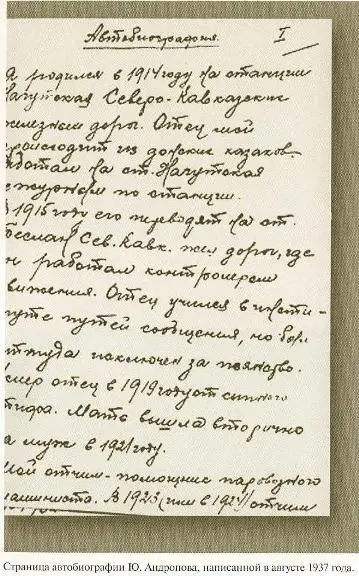 Автобиография. I
Я родился в 1914 году на станции
Нагутская Северо-Кавказских
железных дорог. Отец мой
происходит из донских казаков.
Работал на ст. Нагутская
дежурным по станции.
В 1915 году его переводят на ст.
Беслан Сев. Кавк. жел дороги, где
он работал контролером
движения. Отец учился в инсти-
туте путей сообщения, но был
оттуда исключен за пьянство.
Умер отец в 1919 году от сыпного
тифа. Мать вышла вторично
за муж в 1921 году.
Мой отчим - помощник паровозного
машиниста. В 1923 (или в 1924) отчим
Страница автобиографии Ю. Андропова, написанной в августе 1937 года.